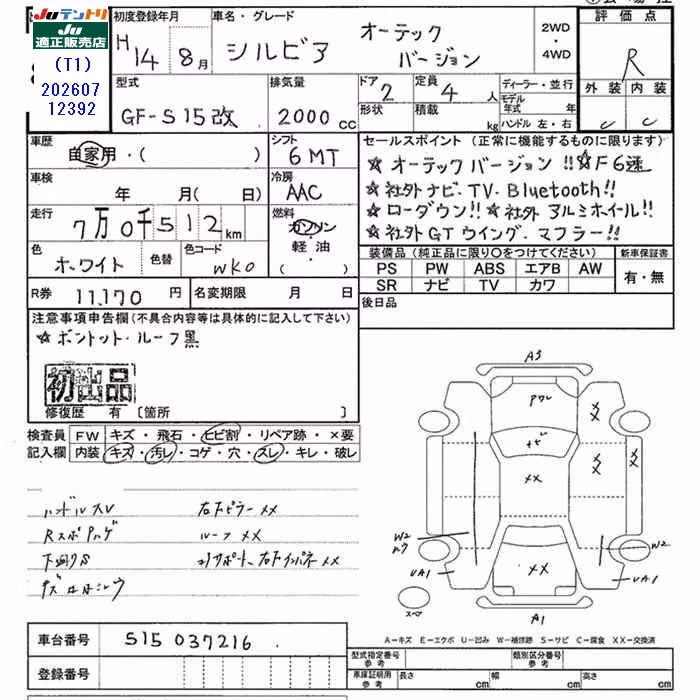 JUテントリ
JU 適正販売店
(T1)
202607
12392
初度登録年月
H14 8月
車名・グレード
シルビア オーテック
バージョン
2WD
4WD
評価点
R
外装 内装
C C
型式
GF-S15改
排気量
2000 CC
ドア 2
形状
定員 4 人
積載 kg
ディーラー・並行
モデル年式 年
ハンドル 左・右
車歴
自家用・( )
シフト
6MT
車検
年 月(日)
冷房
AAC
走行
7万0千512km
燃料
ガソリン
軽油
( )
色
ホワイト
色替
色コード
WK0
R券 11,170円
名変期限 月 日
セールスポイント (正常に機能するものに限ります)
☆オーテックバージョン!!☆F6速
☆社外ナビ・TV・Bluetooth!!
☆ローダウン!!☆社外アルミホイール!!
☆社外GTウイング・マフラー!!
装備品(純正品に限り○をつけてください)
新車保証書
PS PW ABS エアB AW
有・無
SR ナビ TV カワ
後日品
注意事項申告欄(不具合内容等は具体的に記入して下さい)
☆ボンネット・ルーフ黒
初出品
修復歴 有 [箇所 ]
検査員
記入欄
FW キズ・飛石・ヒビ割・リペア跡・×要
内装 キズ・汚レ・コゲ・穴・スレ・キレ・破レ
右下ピラーXX
ルーフXX
A3
ナビ
XX
XX
XX
XX
XX
W2
W2
UA1
UA1
スペア
A1
A－キズ E－エクボ U－凹み W－補修跡 S－サビ C－腐食 XX－交換済
車台番号 S15 037216
登録番号
型式指定番号
参考
類別区分番号
参考
車庫証明用
参考
長さ cm
幅 cm
高さ cm